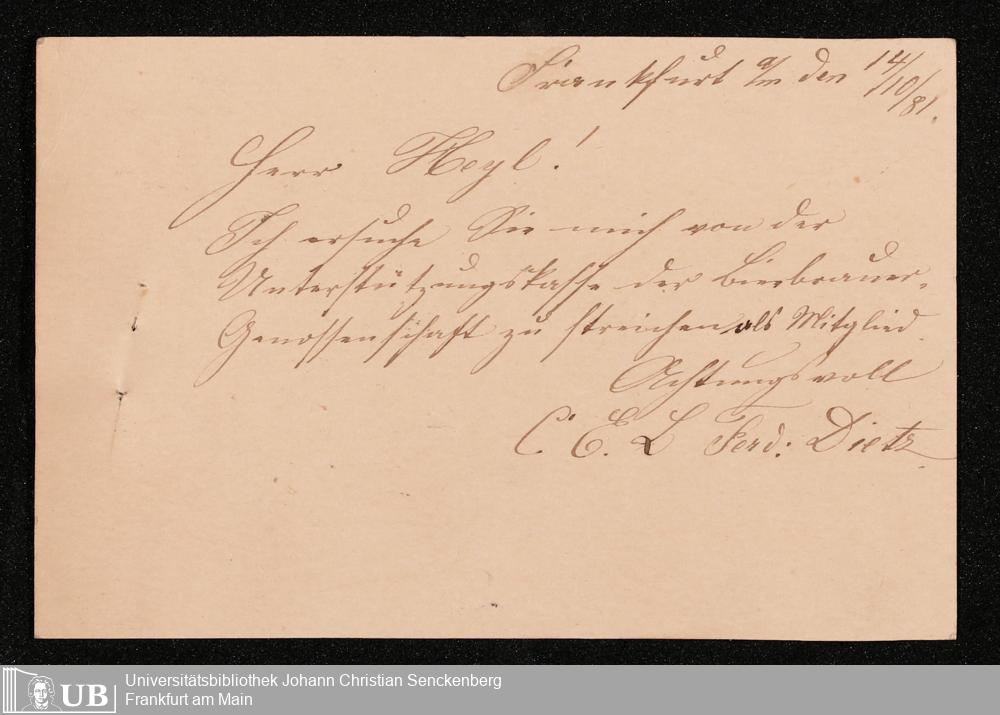 Frankfurt a/m den 14/10/81.
Herr Heyl!
Ich ersuche Sie mich von der
Unterstützungskasse der Bierbrauer-
Genossenschaft zu streichen als Mitglied.
Achtungsvoll
C. E. L Ferd: Dietz
UB
Universitätsbibliothek Johann Christian Senckenberg
Frankfurt am Main